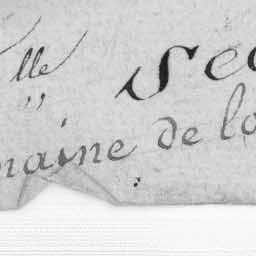 lle Sec
" 
maine de la